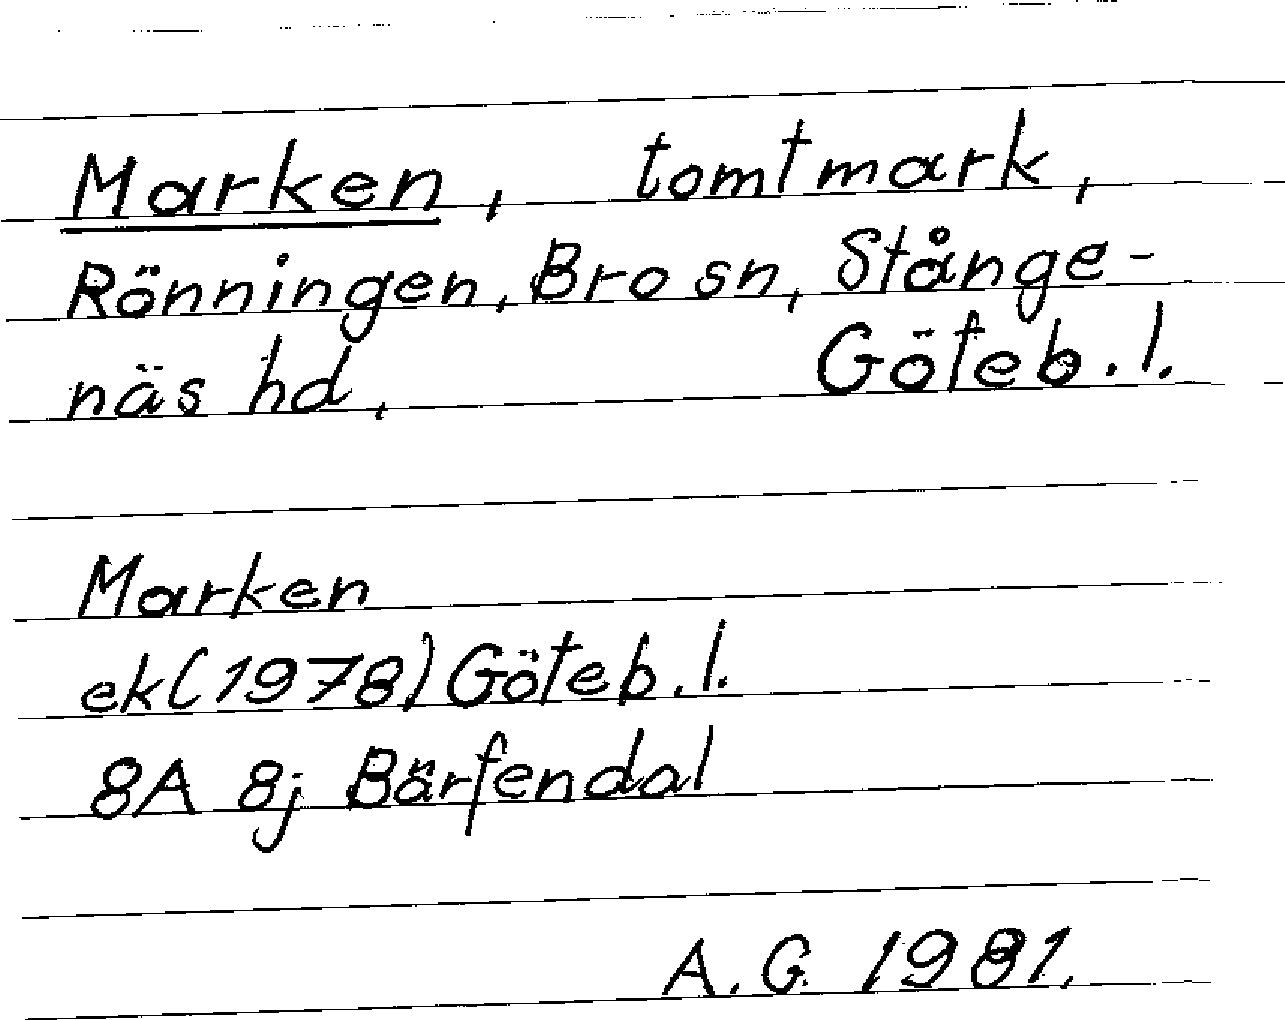 Marken, tomtmark,
Rönningen, Bro sn, Stånge-
näs hd, Göteb. l.
Marken
ek (1978) Göteb. l.
8A 8j Bärfendal
A. G. 1981.